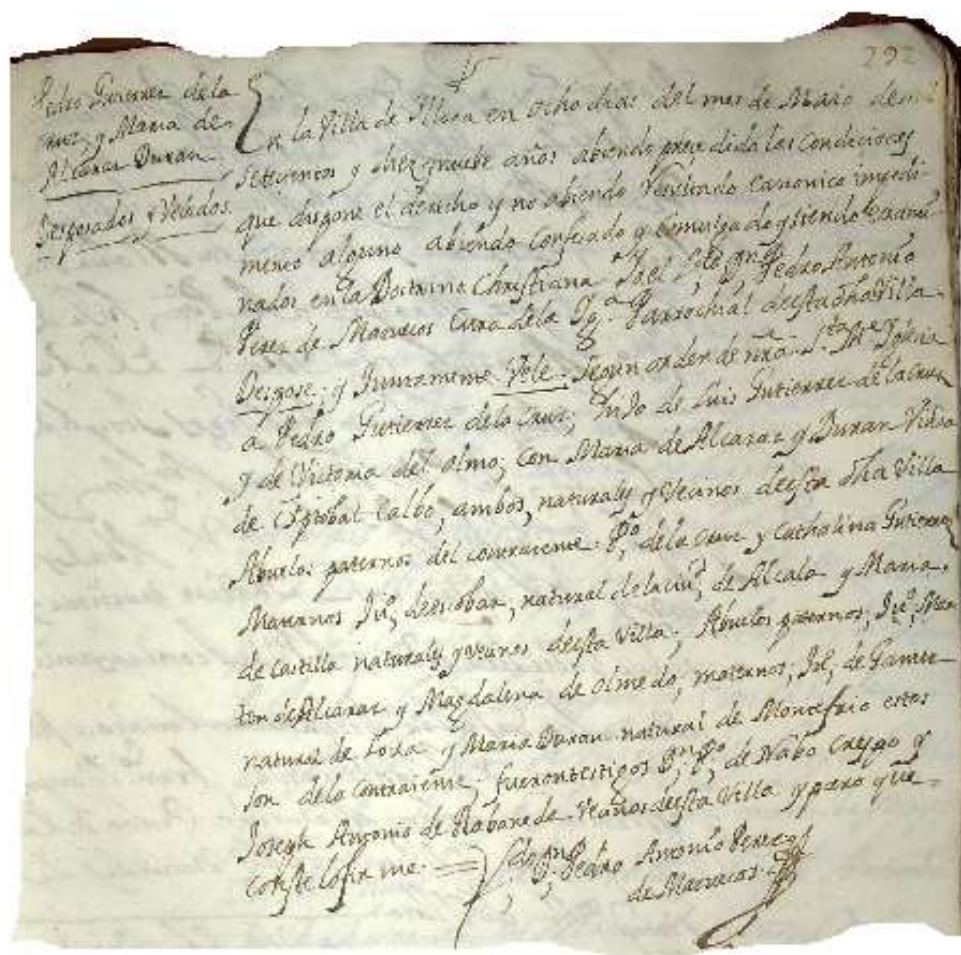 292
Pedro Gutierrez dela
cruz, y Maria de
Alcaraz Duran
Desposados y Velados.
En la Villa de Yllora en ocho dias del mes de Maio de mil
setecientos y diez y nuebe años abiendo precedido las condiciones
que dispone el derecho y no abiendo Resultado Canonico impedi-
mento alguno abiendo Confesado y Comulgado y siendo exami
nados en la Doctrina Christiana Yo el Pedro Antonio
Perez de Macuecos Cura dela Parrochial desta dha Villa
Despose; y Juntamente Vele segun orden de nra Sta Me Yglecia
a Pedro Gutierrez dela Cruz; hijo de Luis Gutierrez de la Cruz
y de Victoria del olmo; con Maria de Alcaraz y Duran Viuda
de Cristobal Calbo, ambos, naturales y Vecinos desta dha Villa
Abuelos paternos del contraiente Po, dela Cruz y Cathalina Gutierrez
Maternos Juo, de escobar, natural de la ciud de Alcala y Maria
de Castilla naturales y vecinos desta Villa; Abuelos paternos, Juo, Mar
tin de Alcaraz y Magdalena de olmedo, maternos; de
natural de Loxa y Maria Duran natural de Montefrio estos
son dela contraiente; fueron testigos Dn, Po, de Nabo Crespo y
Joseph Antonio de Rabaneda Vecinos desta Villa y para que
Conste lo firme =
Pedro Antonio Perez
de Macuecos